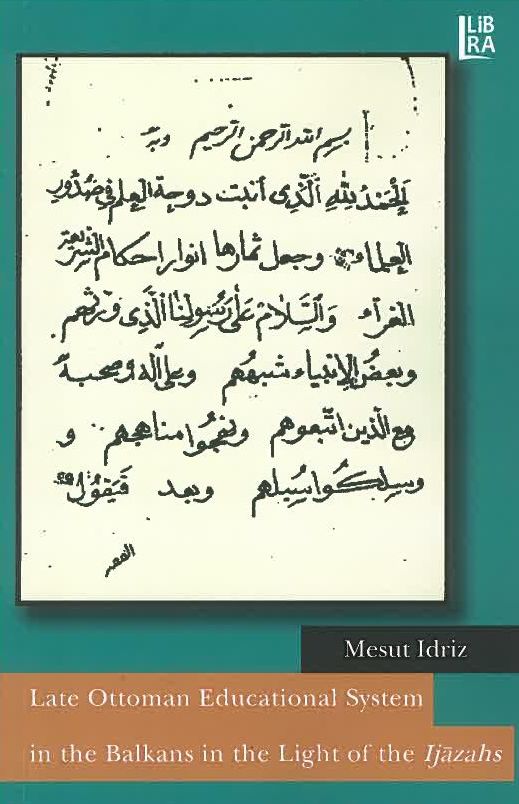 LiBRA
بسم الله الرحمن الرحيم وبه
الحمد لله الذى أنبت دوحة العلم فى صدور
العلماء وجعل ثمارها انوار احكام الشريعة
الغراء والسلام على رسولنا الذى ورثهم
وبعض الانبياء شبههم وعلى آله وصحبه
مع الذين اتبعوهم ونهجوا مناهجهم و
وسلكوا سبيلهم وبعد فيقول
الفقير
Mesut Idriz
Late Ottoman Educational System
in the Balkans in the Light of the Ijāzahs